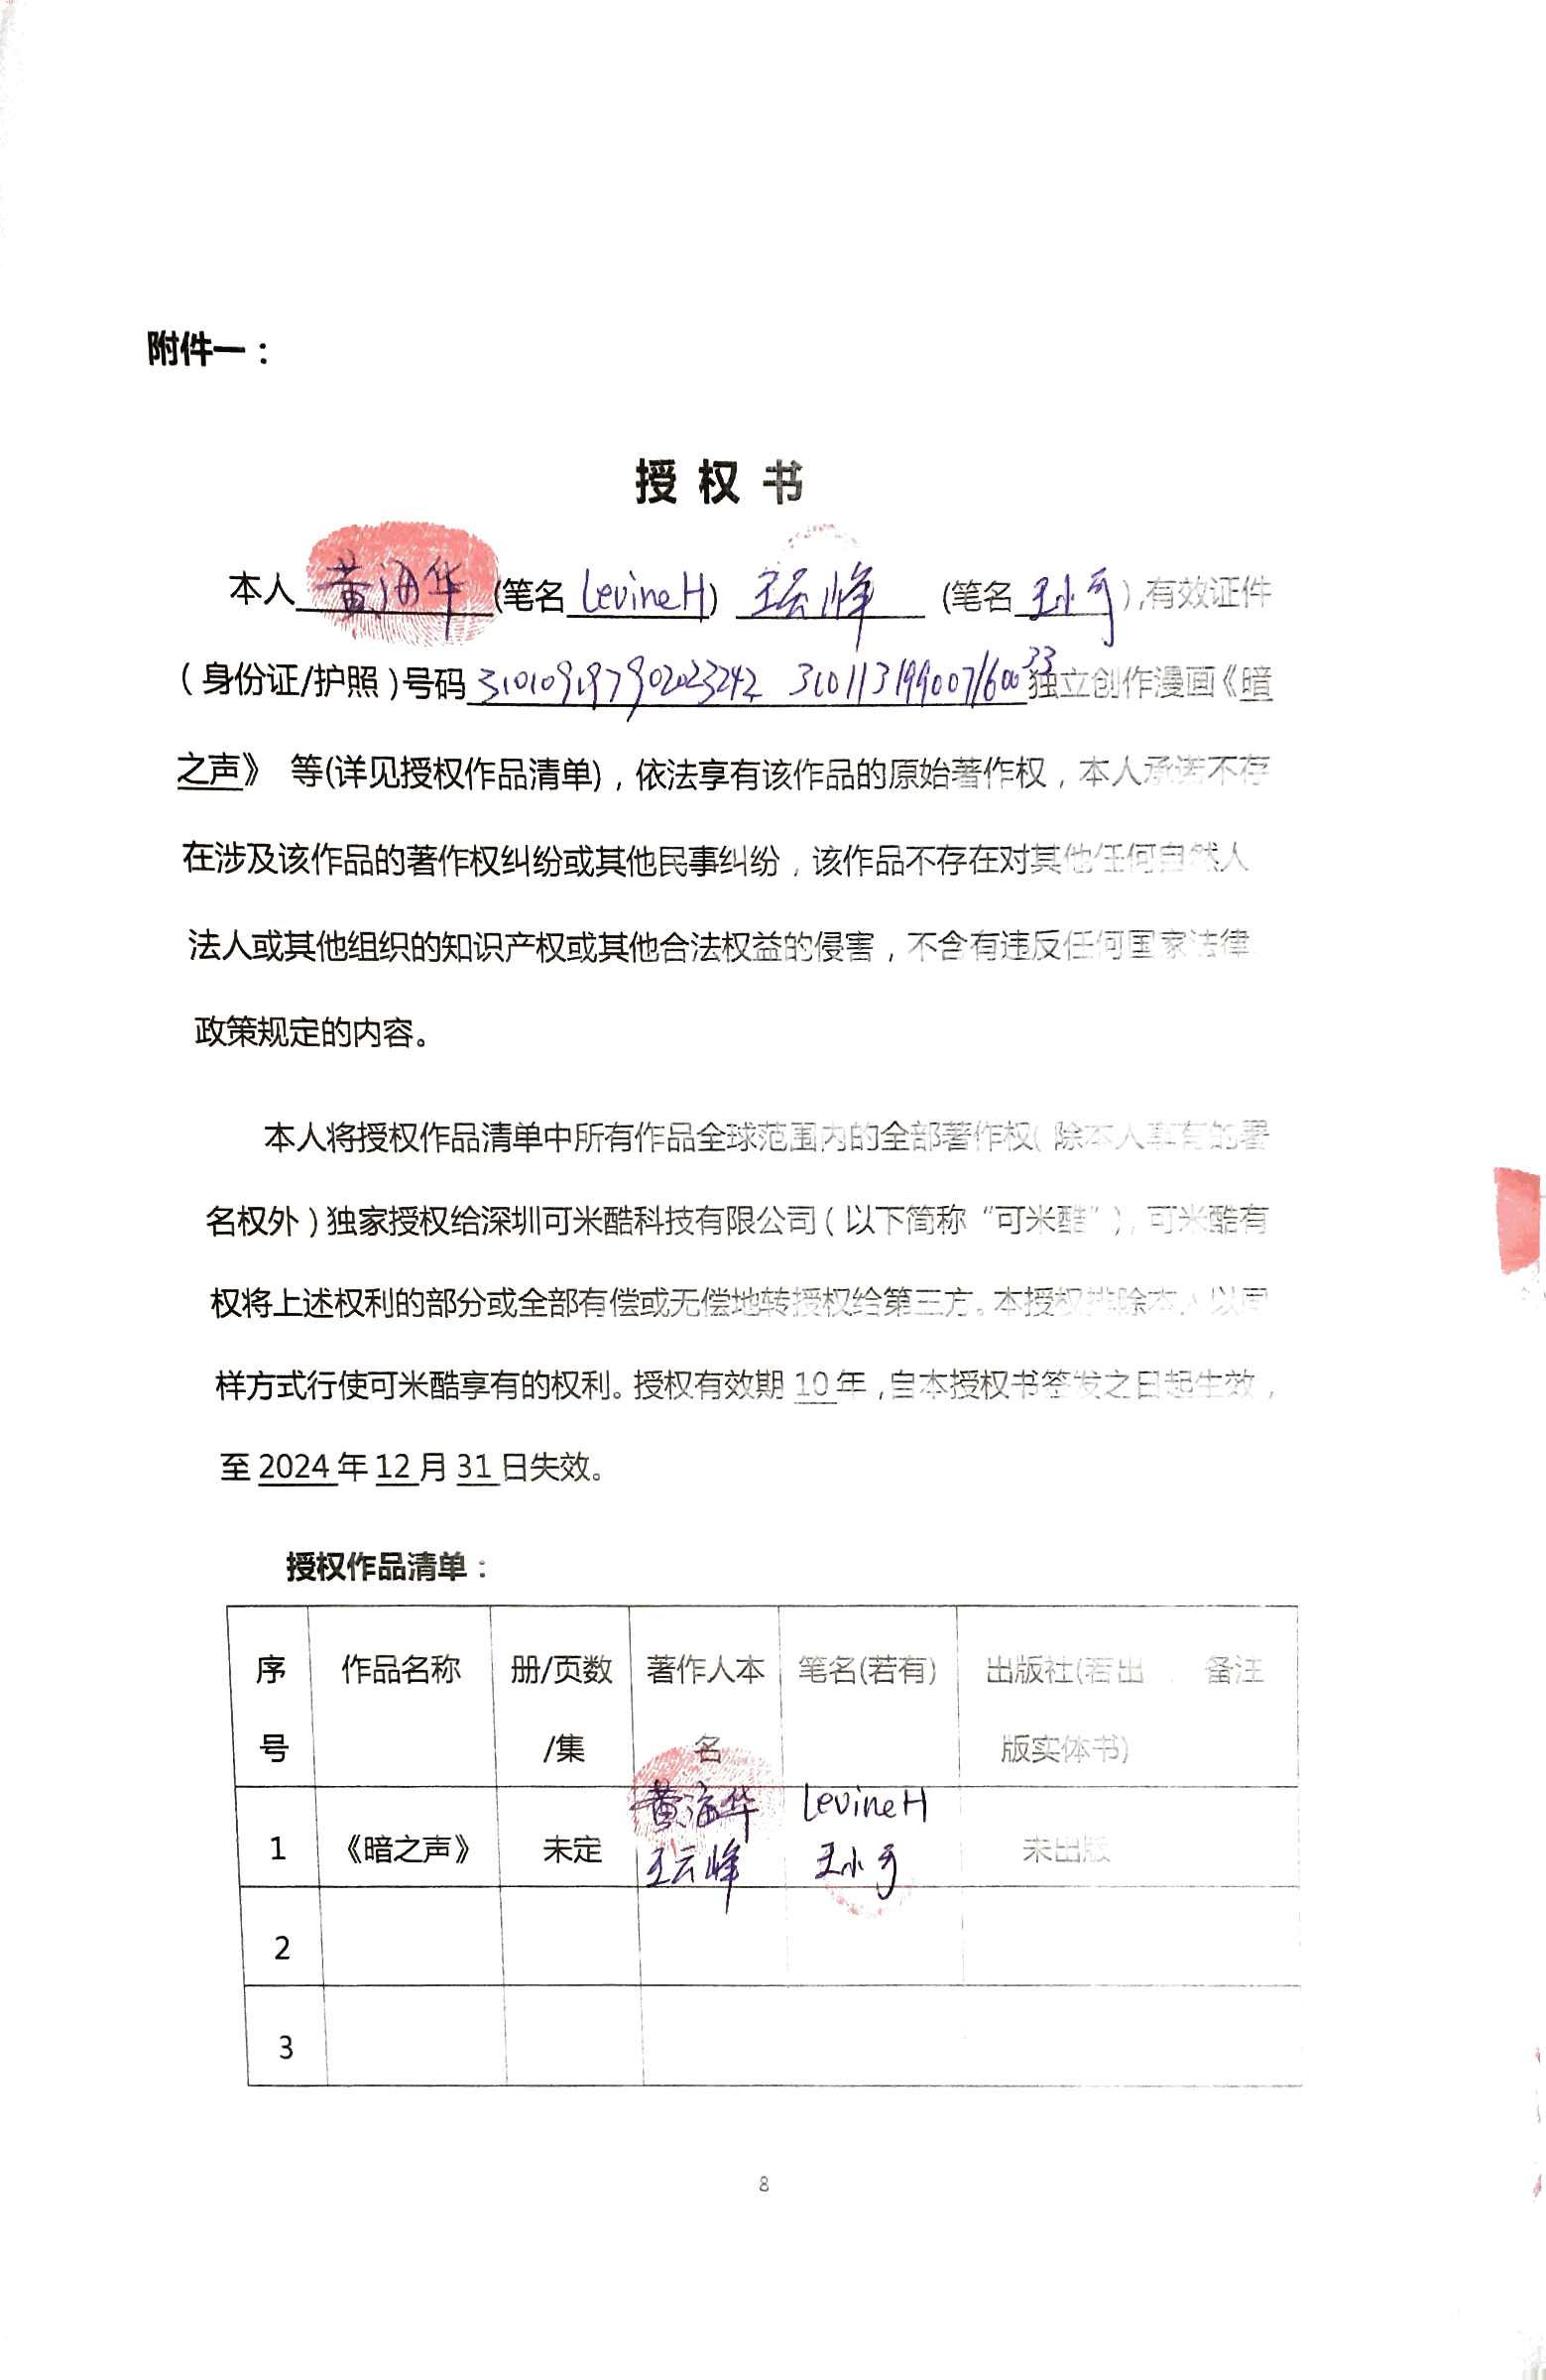 附件一：
授 权 书
本人 黄海华 (笔名 LevineH) 王云峰 (笔名 王小弓),有效证件
（身份证/护照）号码 310109197902023242 310113199007160033 独立创作漫画《暗
之声》 等(详见授权作品清单)，依法享有该作品的原始著作权，本人承诺不存
在涉及该作品的著作权纠纷或其他民事纠纷，该作品不存在对其他任何自然人
法人或其他组织的知识产权或其他合法权益的侵害，不含有违反任何国家法律、
政策规定的内容。
本人将授权作品清单中所有作品全球范围内的全部著作权（除本人享有的署
名权外）独家授权给深圳可米酷科技有限公司（以下简称“可米酷”），可米酷有
权将上述权利的部分或全部有偿或无偿地转授权给第三方。本授权排除本人以同
样方式行使可米酷享有的权利。授权有效期 10 年，自本授权书签发之日起生效，
至 2024 年 12 月 31 日失效。
授权作品清单：
序 作品名称 册/页数 著作人本 笔名(若有) 出版社(若出 备注
号 /集 名 版实体书)
黄海华 LevineH
1 《暗之声》 未定 未出版
王云峰 王小弓
2
3
8